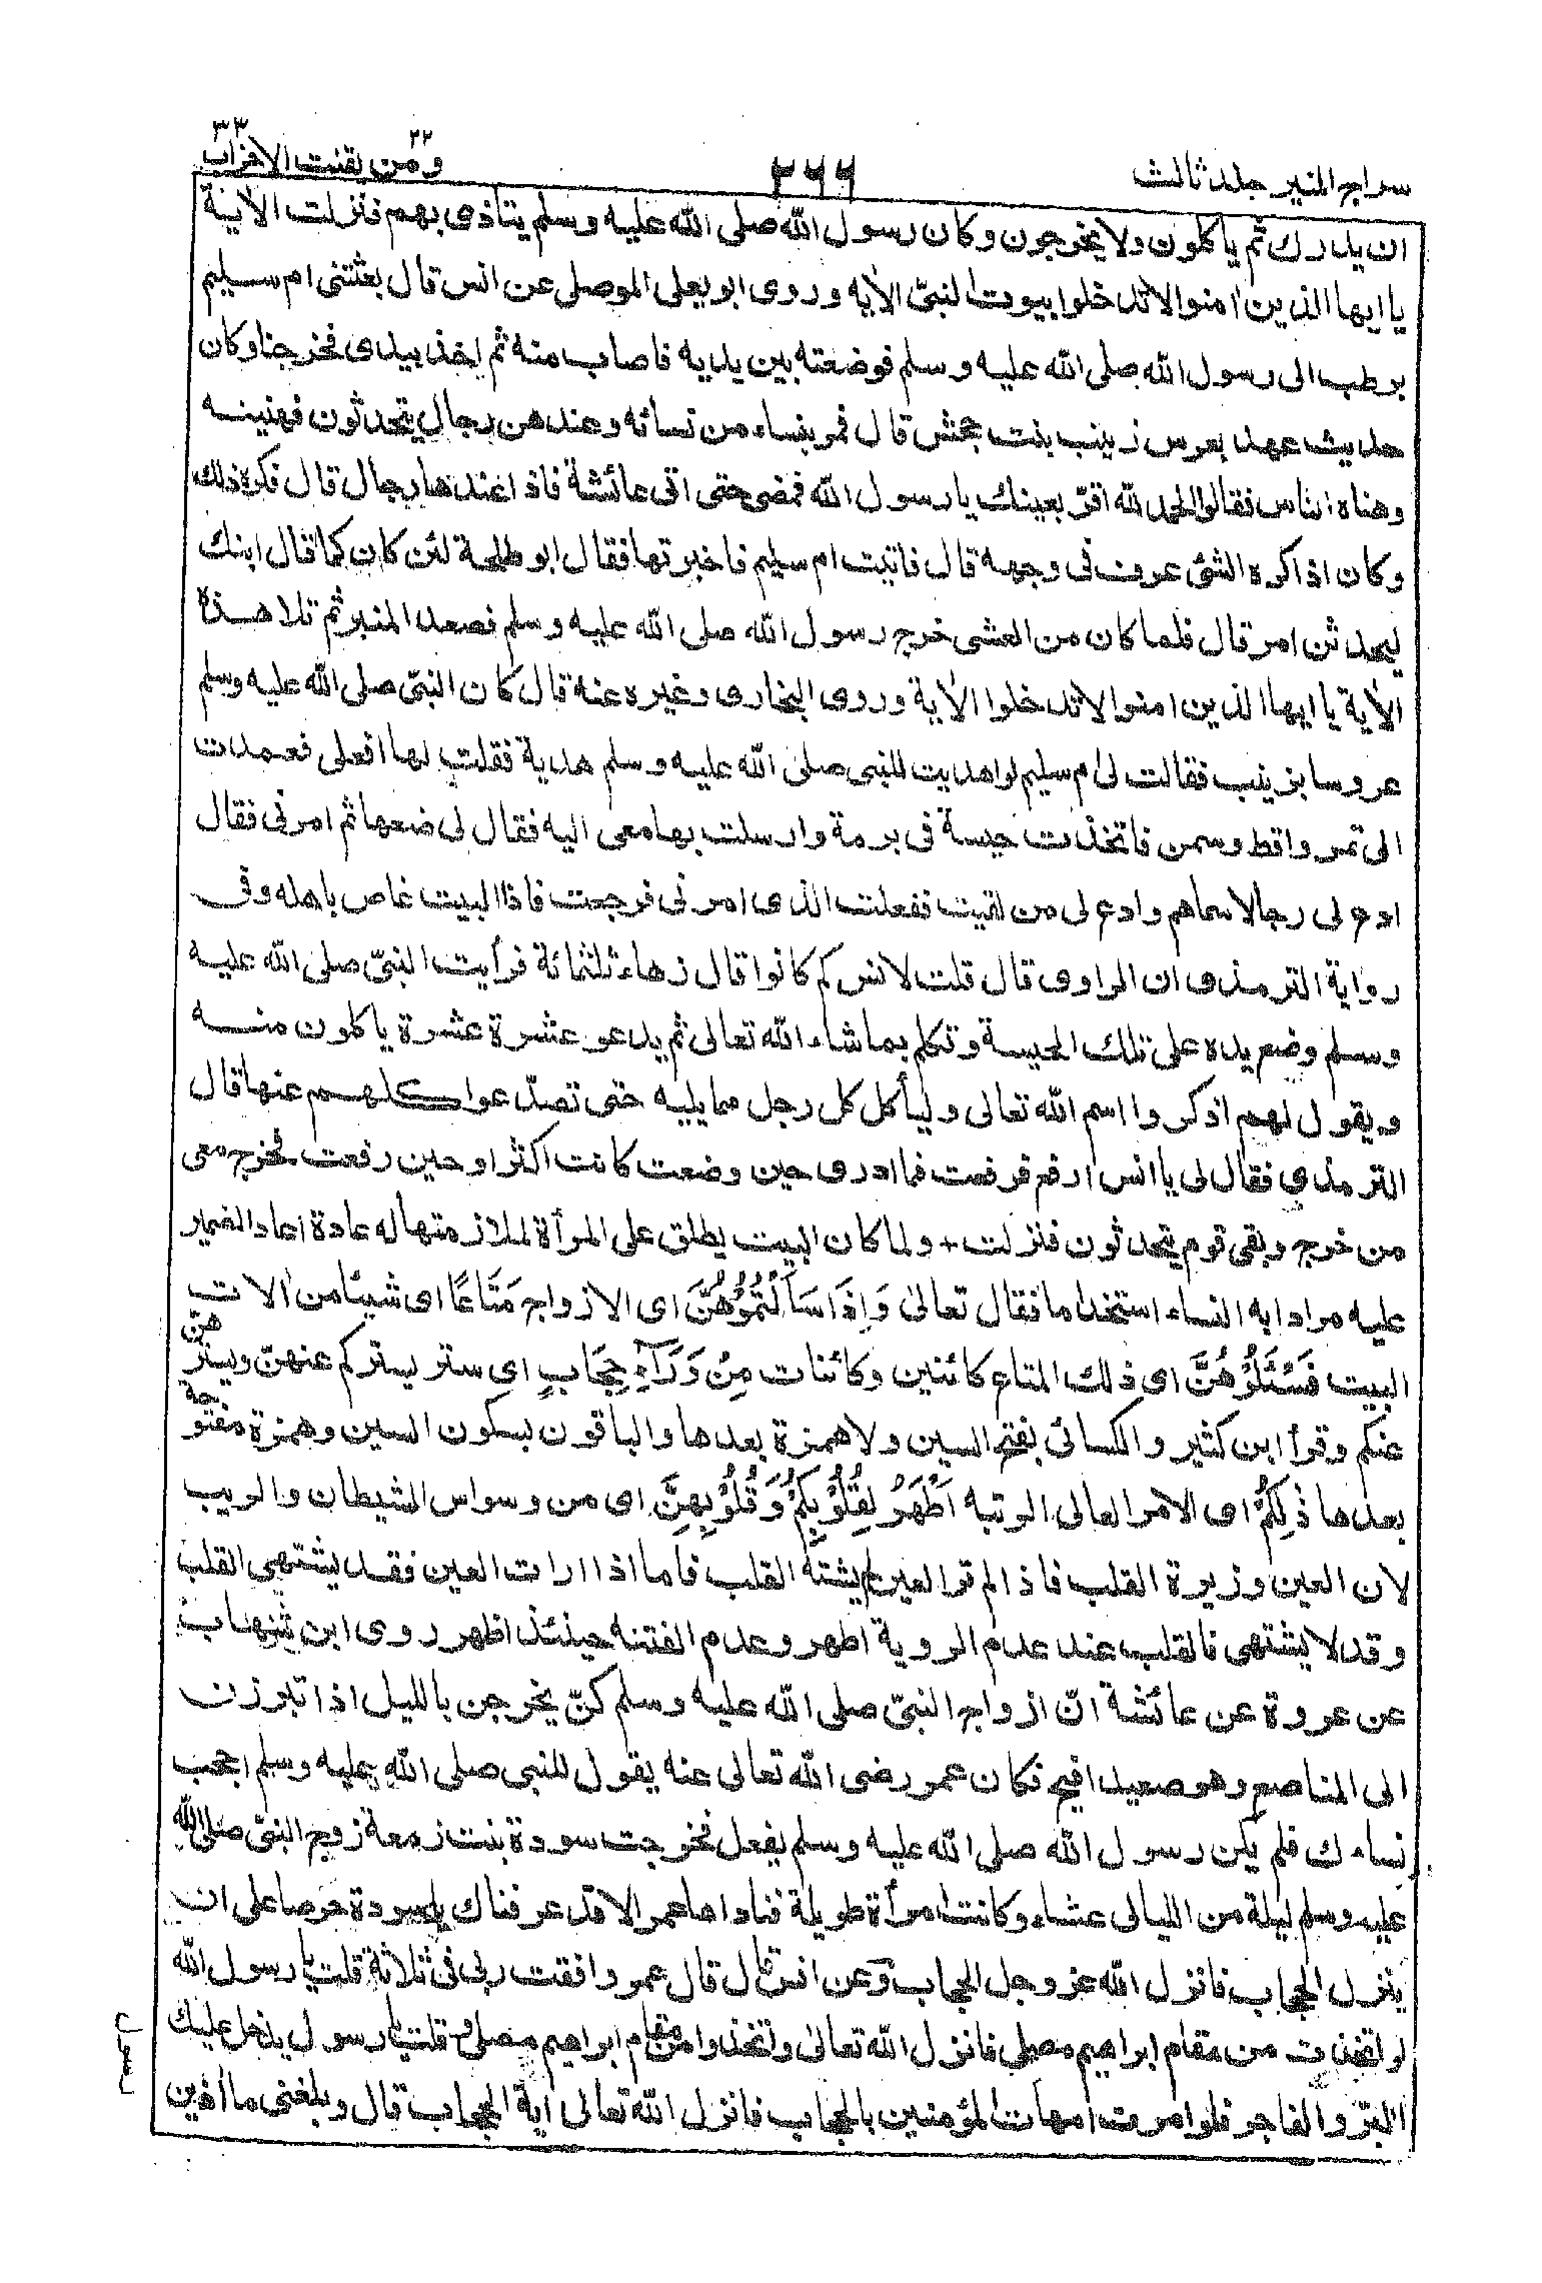 سراج المنير جلد ثالث
٢٦٦
٢٢ ومن يقنت الاحزاب ٣٣
ان يدرك ثم ياكلون ولا يخرجون وكان رسول الله صلى الله عليه وسلم يتاذى بهم فنزلت الأية
يا ايها الذين أمنوا لا تدخلوا بيوت النبىّ الأيه وروى ابو يعلى الموصلى عن انس قال بعثتنى ام سليم
برطب الى رسول الله صلى الله عليه وسلم فوضعته بين يديه فاصاب منه ثم اخذ بيدى فخرجنا وكان
حديث عهد بعرس زينب بنت جحش قال فمر بنساء من نسائه وعندهن رجال يتحدثون فهنينه
وهناه الناس فقالوا الحمد لله اقرّ بعينك يا رسول الله فمضى حتى اتى عائشة فاذا عندها رجال قال فكره ذلك
وكان اذا كره الشئ عرف فى وجهه قال فاتيت ام سليم فاخبرتها فقال ابو طلحة لئن كان كما قال ابنك
ليحدثن امر قال فلما كان من العشى خرج رسول الله صلى الله عليه وسلم فصعد المنبر ثم تلا هذه
الأية يا ايها الذين امنوا لا تدخلوا الأية وروى البخارى وغيره عنه قال كان النبىّ صلى الله عليه وسلم
عروسا بزينب فقالت لى ام سليم لو اهديت للنبى صلى الله عليه وسلم هدية فقلت لها افعلى فعمدت
الى تمر واقط وسمن فاتخذت حيسة فى برمة وارسلت بها معى اليه فقال لى ضعها ثم امرنى فقال
ادع لى رجالا سماهم وادع لى من لقيت ففعلت الذى امرنى فرجعت فاذا البيت غاص باهله وفى
رواية الترمذى ان الراوى قال قلت لانس كم كانوا قال زهاء ثلثمائة فرأيت النبىّ صلى الله عليه
وسلم وضع يده على تلك الحيسة وتكلم بما شاء الله تعالى ثم يدعو عشرة عشرة ياكلون منه
ويقول لهم اذكروا اسم الله تعالى وليأكل كل رجل مما يليه حتى تصدّعوا كلهم عنها قال
الترمذى فقال لى يا انس ارفع فرفعت فما ادرى حين وضعت كانت اكثر او حين رفعت فخرج معى
من خرج وبقى قوم يتحدثون فنزلت + ولما كان البيت يطلق على المرأة لملازمتها له عادة اعاد الضمير
عليه مرادا به النساء استخداما فقال تعالىٰ وَاِذَا سَاَلْتُمُوْهُنَّ اى الازواج مَتَاعًا اى شيئا من ألات
البيت فَسْـَٔلُوْهُنَّ اى ذلك المتاع كائنين وكائنات مِنْ وَرَآءِ حِجَابٍ اى ستر يستركم عنهنّ ويسترهنّ
عنكم وقرأ ابن كثير والكسائى بفتح السين ولا همزة بعدها والباقون بسكون السين وهمزة مفتوحة
بعدها ذٰلِكُمْ اى الامر العالى الرتبه اَطْهَرُ لِقُلُوْبِكُمْ وَقُلُوْبِهِنَّ اى من وسواس الشيطان والريب
لان العين وزيرة القلب فاذا لم تر العين لم يشته القلب فاما اذا ارات العين فقد يشتهى القلب
وقد لا يشتهى فالقلب عند عدم الروية اطهر وعدم الفتنه حينئذ اظهر روى ابن شهاب
عن عروة عن عائشة انّ ازواج النبىّ صلى الله عليه وسلم كنّ يخرجن بالليل اذا تبرزن
الى المناصع وهو صعيد افيح فكان عمر رضى الله تعالى عنه يقول للنبى صلى الله عليه وسلم احجب
نساءك فلم يكن رسول الله صلى الله عليه وسلم يفعل فخرجت سودة بنت زمعة زوج النبىّ صلى الله
عليه وسلم ليلة من الليالى عشاء وكانت امرأة طويلة فناداها عمر الا قد عرفناك يا سودة حرصا على ان
ينزل الحجاب فانزل الله عز وجل الحجاب وعن انس قال قال عمر وافقت ربى فى ثلاثة قلت يا رسول الله
لو اتخذت من مقام ابراهيم مصلى فانزل الله تعالىٰ واتخذوا من مقام ابراهيم مصلى وقلت يا رسول يدخل عليك
البرّ والفاجر فلو امرت امهات المؤمنين بالحجاب فانزل الله تعالى أية الحجاب قال وبلغنى ما أذين
رسول